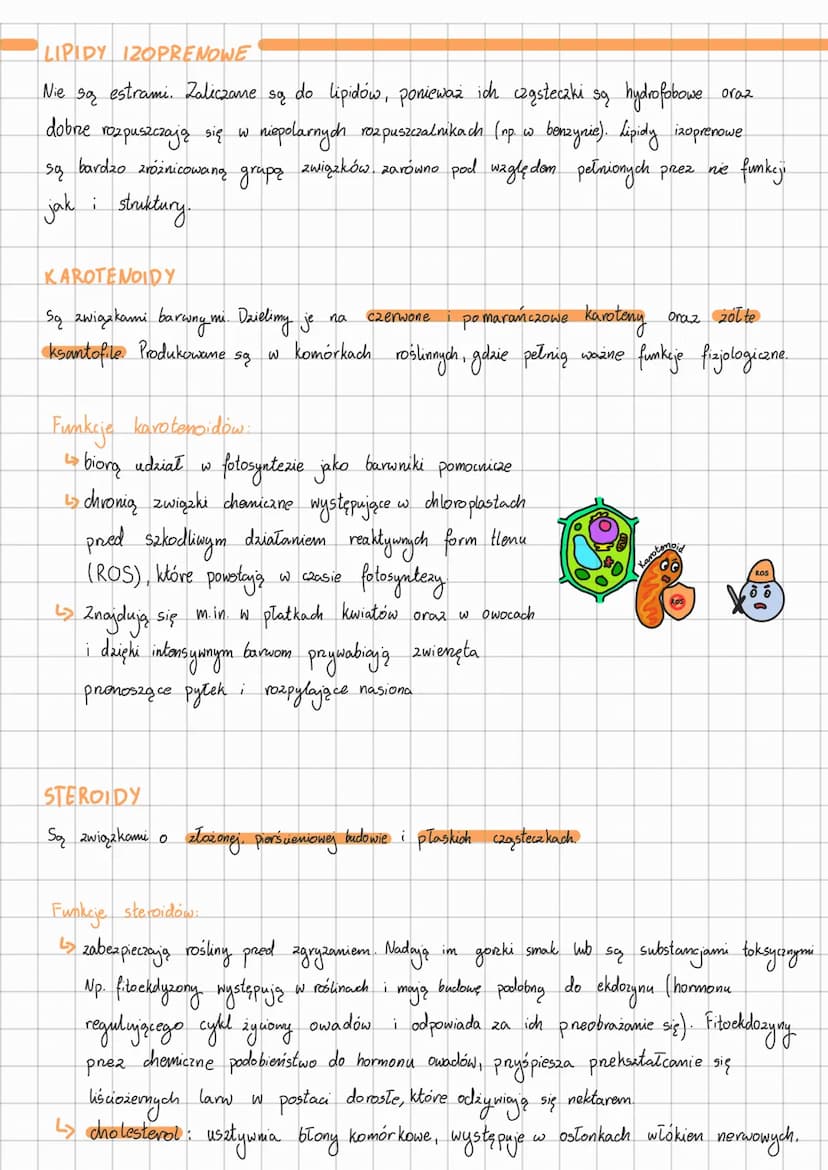 LIPIDY IZOPRENOWE
Nie są estrami. Zaliczane są do lipidów, ponieważ ich cząsteczki są hydrofobowe oraz
dobrze rozpuszczają się w niepolarnych rozpuszczalnikach (np. w benzynie). Lipidy izoprenowe
są bardzo zróżnicowaną grupą związków. zarówno pod względem pełnionych przez nie funkcji
jak i struktury.
KAROTENOIDY
Są związkami barwnymi. Dzielimy je na czerwone i pomarańczowe karoteny oraz żółte
ksantofile. Produkowane są w komórkach roślinnych, gdzie pełnią ważne funkcje fizjologiczne.
Funkcje karotenoidów:
↳ biorą udział w fotosyntezie jako barwniki pomocnicze
↳ chronią związki chemiczne występujące w chloroplastach
przed szkodliwym działaniem reaktywnych form tlenu
(ROS), które powstają w czasie fotosyntezy.
↳ Znajdują się m.in. w płatkach kwiatów oraz w owocach
i dzięki intensywnym barwom przywabiają zwierzęta
przenoszące pyłek i rozpylające nasiona
Karotenoid
ROS
ROS
STEROIDY
Są związkami o złożonej, pierścieniowej budowie i płaskich cząsteczkach.
Funkcje steroidów:
↳ zabezpieczają rośliny przed zgryzaniem. Nadają im gorzki smak lub są substancjami toksycznymi
Np. fitoekdyzony występują w roślinach i mają budowę podobną do ekdozynu (hormonu
regulującego cykl życiowy owadów i odpowiada za ich przeobrażanie się). Fitoekdozyny
przez chemiczne podobieństwo do hormonu owadów, przyśpiesza przekształcanie się
liściożernych larw w postaci dorosłe, które odżywiają się nektarem.
↳ cholesterol: usztywnia błony komórkowe, występuje w osłonkach włókien nerwowych.